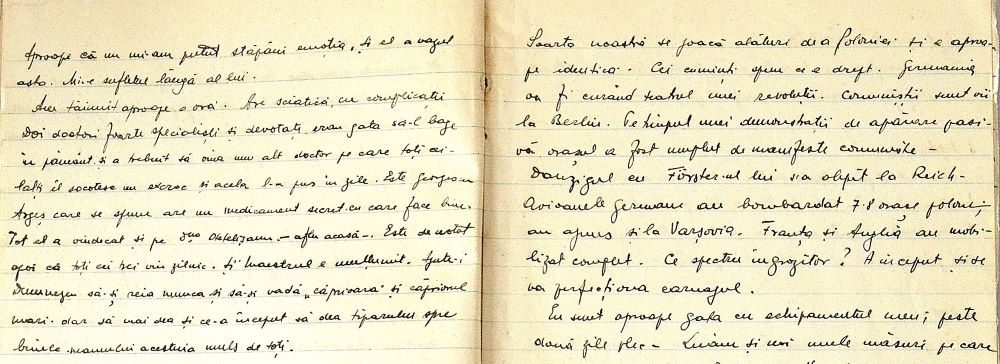 Aproape că nu mi-am putut stăpâni emoția. Și el a văzut
asta. Mi-e sufletul lângă al lui.
Am tăinuit aproape o oră. Are sciatică, cu complicații
Doi doctori foarte specialiști și devotați erau gata să-l bage
în pământ și a trebuit să vină un alt doctor pe care toți cei-
lalți îl socotesc un excroc și acela l-a pus în zile. Este Georgescu
Argeș care se spune are un medicament secret cu care face bine.
Tot el a vindecat și pe – aflu acasă –. Este de notat
apoi că toți cei trei vin zilnic. Și Maestrul e mulțumit. Ajute-i
Dumnezeu să-și reia munca și să-și vadă "căprioara" și căpriorul
mari. dar să mai dea și ce-a început să dea tiparului spre
binele neamului acestuia muls de toți.
Soarta noastră se joacă alături de a Poloniei și e aproa-
pe identică. Cei cuminți spun ce e drept. Germania
va fi curând teatrul unei revoluții. Comuniștii sunt vii
la Berlin. Pe timpul unei demonstrații de apărare pasi-
vă orașul a fost umplut de manifeste comuniste –
Danzigul cu Förster-ul lui s-a alipit la Reich-
Avioanele germane au bombardat 7-8 orașe polone,
au ajuns și la Varșovia. Franța și Anglia au mobi-
lizat complet. Ce spectru îngrozitor? A început și se
va perfecționa carnagiul.
Eu sunt aproape gata cu echipamentul meu; peste
două zile plec – Luăm și noi unele măsuri pe care